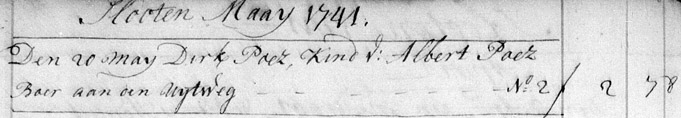 Slooten Maay 1741.
Den 20 May Dirk Poez, Kind v: Albert Poez
Boer aan den Uytweg - - - - - No 2 / 2 7 8